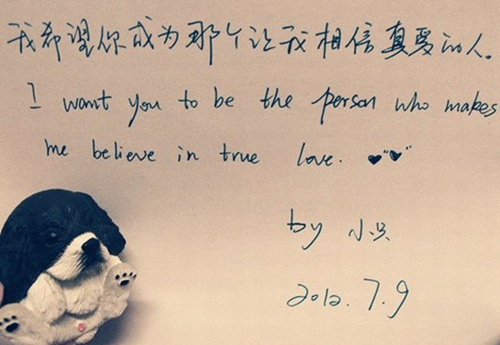 我希望你成为那个让我相信真爱的人。
I want you to be the person who makes
me believe in true love.
by 小
2012.7.9